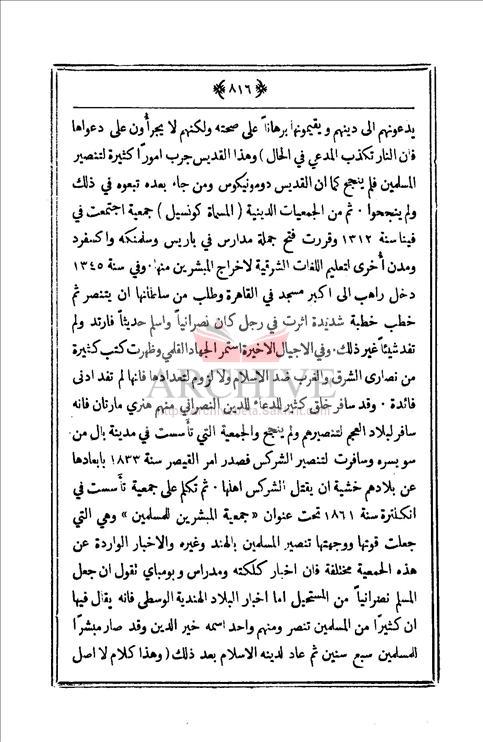 ﴿٨١٦﴾
يدعونهم الى دينهم ويقيمونها برهاناً على صحته ولكنهم لا يجرأون على دعواها
فان النار تكذب المدعي في الحال ) وهذا القديس جرب اموراً كثيرة لتنصير
المسلمين فلم ينجح كما ان القديس دومونيكوس ومن جاء بعده تبعوه في ذلك
ولم ينجحوا ٠ ثم من الجمعيات الدينية ( المسماة كونسيل ) جمعية اجتمعت في
فينا سنة ١٣١٢ وقررت فتح جملة مدارس في باريس وسلمنكه واكسفرد
ومدن أخرى لتعليم اللغات الشرقية لاخراج المبشرين منها ٠ وفي سنة ١٣٤٥
دخل راهب الى اكبر مسجد في القاهرة وطلب من سلطانها ان يتنصر ثم
خطب خطبة شديدة اثرت في رجل كان نصرانياً واسلم حديثاً فارتد ولم
تفد شيئاً غير ذلك ٠ وفي الاجيال الاخيرة استمر الجهاد القلمي وظهرت كتب كثيرة
من نصارى الشرق والغرب ضد الاسلام ولا لزوم لتعدادها فانها لم تفد ادنى
ARCHIVE
فائدة ٠ وقد سافر خلق كثير للدعاء للدين النصراني منهم هنري مارتان فانه
سافر لبلاد العجم لتنصيرهم ولم ينجح والجمعية التي تأسست في مدينة بال من
سويسره وسافرت لتنصير الشركس فصدر امر القيصر سنة ١٨٣٣ بابعادها
عن بلادهم خشية ان يقتل الشركس اهلها ٠ ثم تكلم على جمعية تأسست في
انكلترة سنة ١٨٦١ تحت عنوان « جمعية المبشرين للمسلمين » وهي التي
جعلت قوتها ووجهتها تنصير المسلمين بالهند وغيره والاخبار الواردة عن
هذه الجمعية مختلفة فان اخبار كلكته ومدراس وبومباي تقول ان جعل
المسلم نصرانياً من المستحيل اما اخبار البلاد الهندية الوسطى فانه يقال فيها
ان كثيراً من المسلمين تنصر ومنهم واحد اسمه خير الدين وقد صار مبشراً
للمسلمين سبع سنين ثم عاد لدينه الاسلام بعد ذلك ( وهذا كلام لا اصل